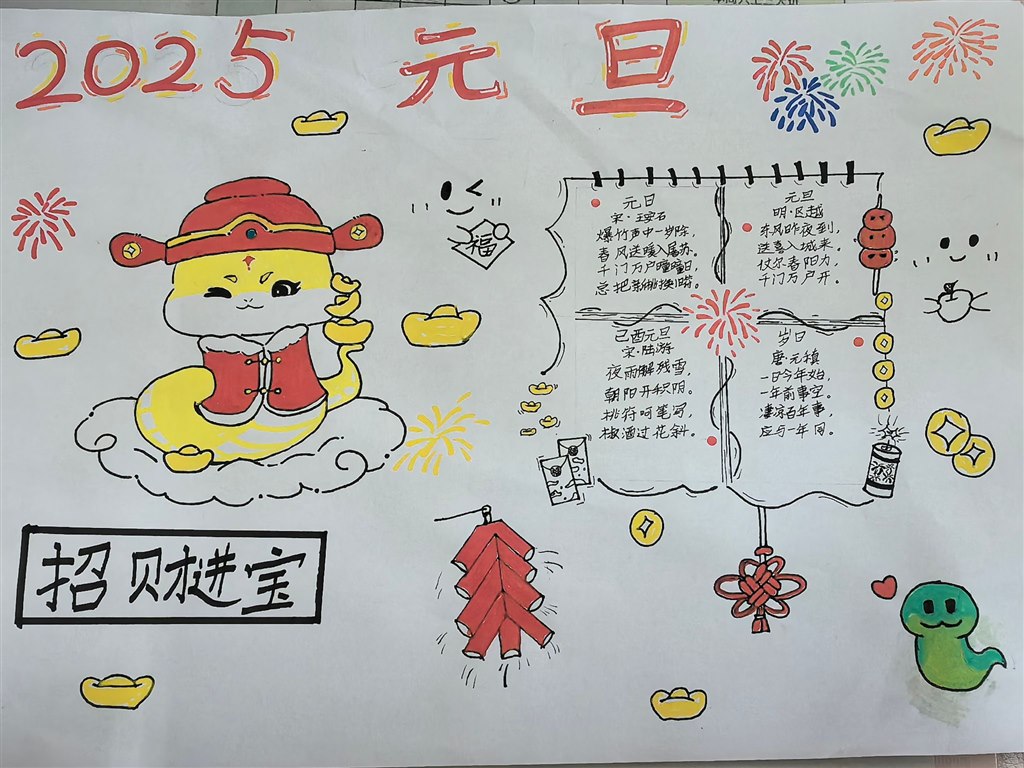 2025 元旦
福
元日
宋·王安石
爆竹声中一岁除，
春风送暖入屠苏。
千门万户曈曈日，
总把新桃换旧符。
元旦
明·区越
东风昨夜到，
送喜入城来。
仗尔春阳力，
千门万户开。
己酉元旦
宋·陆游
夜雨解残雪，
朝阳开积阴。
桃符呵笔写，
椒酒过花斜。
岁日
唐·元稹
一日今年始，
一年前事空。
凄凉百年事，
应与一年同。
招财进宝